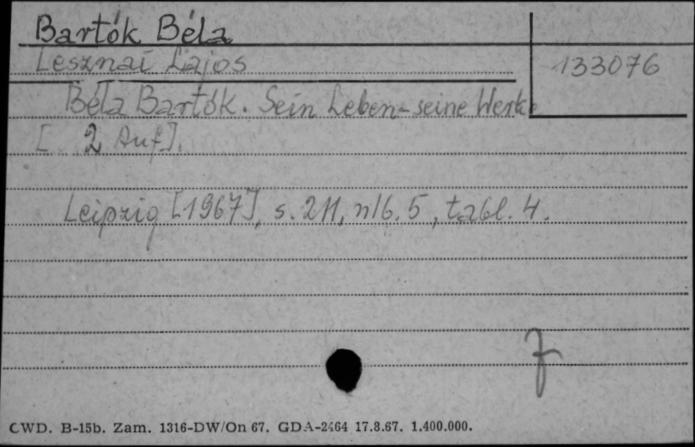 Bartók Béla
Lesznai Lajos
133076
Béla Bartók. Sein Leben - seine Werke.
[ 2 Auf].
Leipzig [1967], s. 211, nlb. 5, tabl. 4.
7
CWD. B-15b. Zam. 1316-DW/On 67. GDA-2464 17.8.67. 1.400.000.